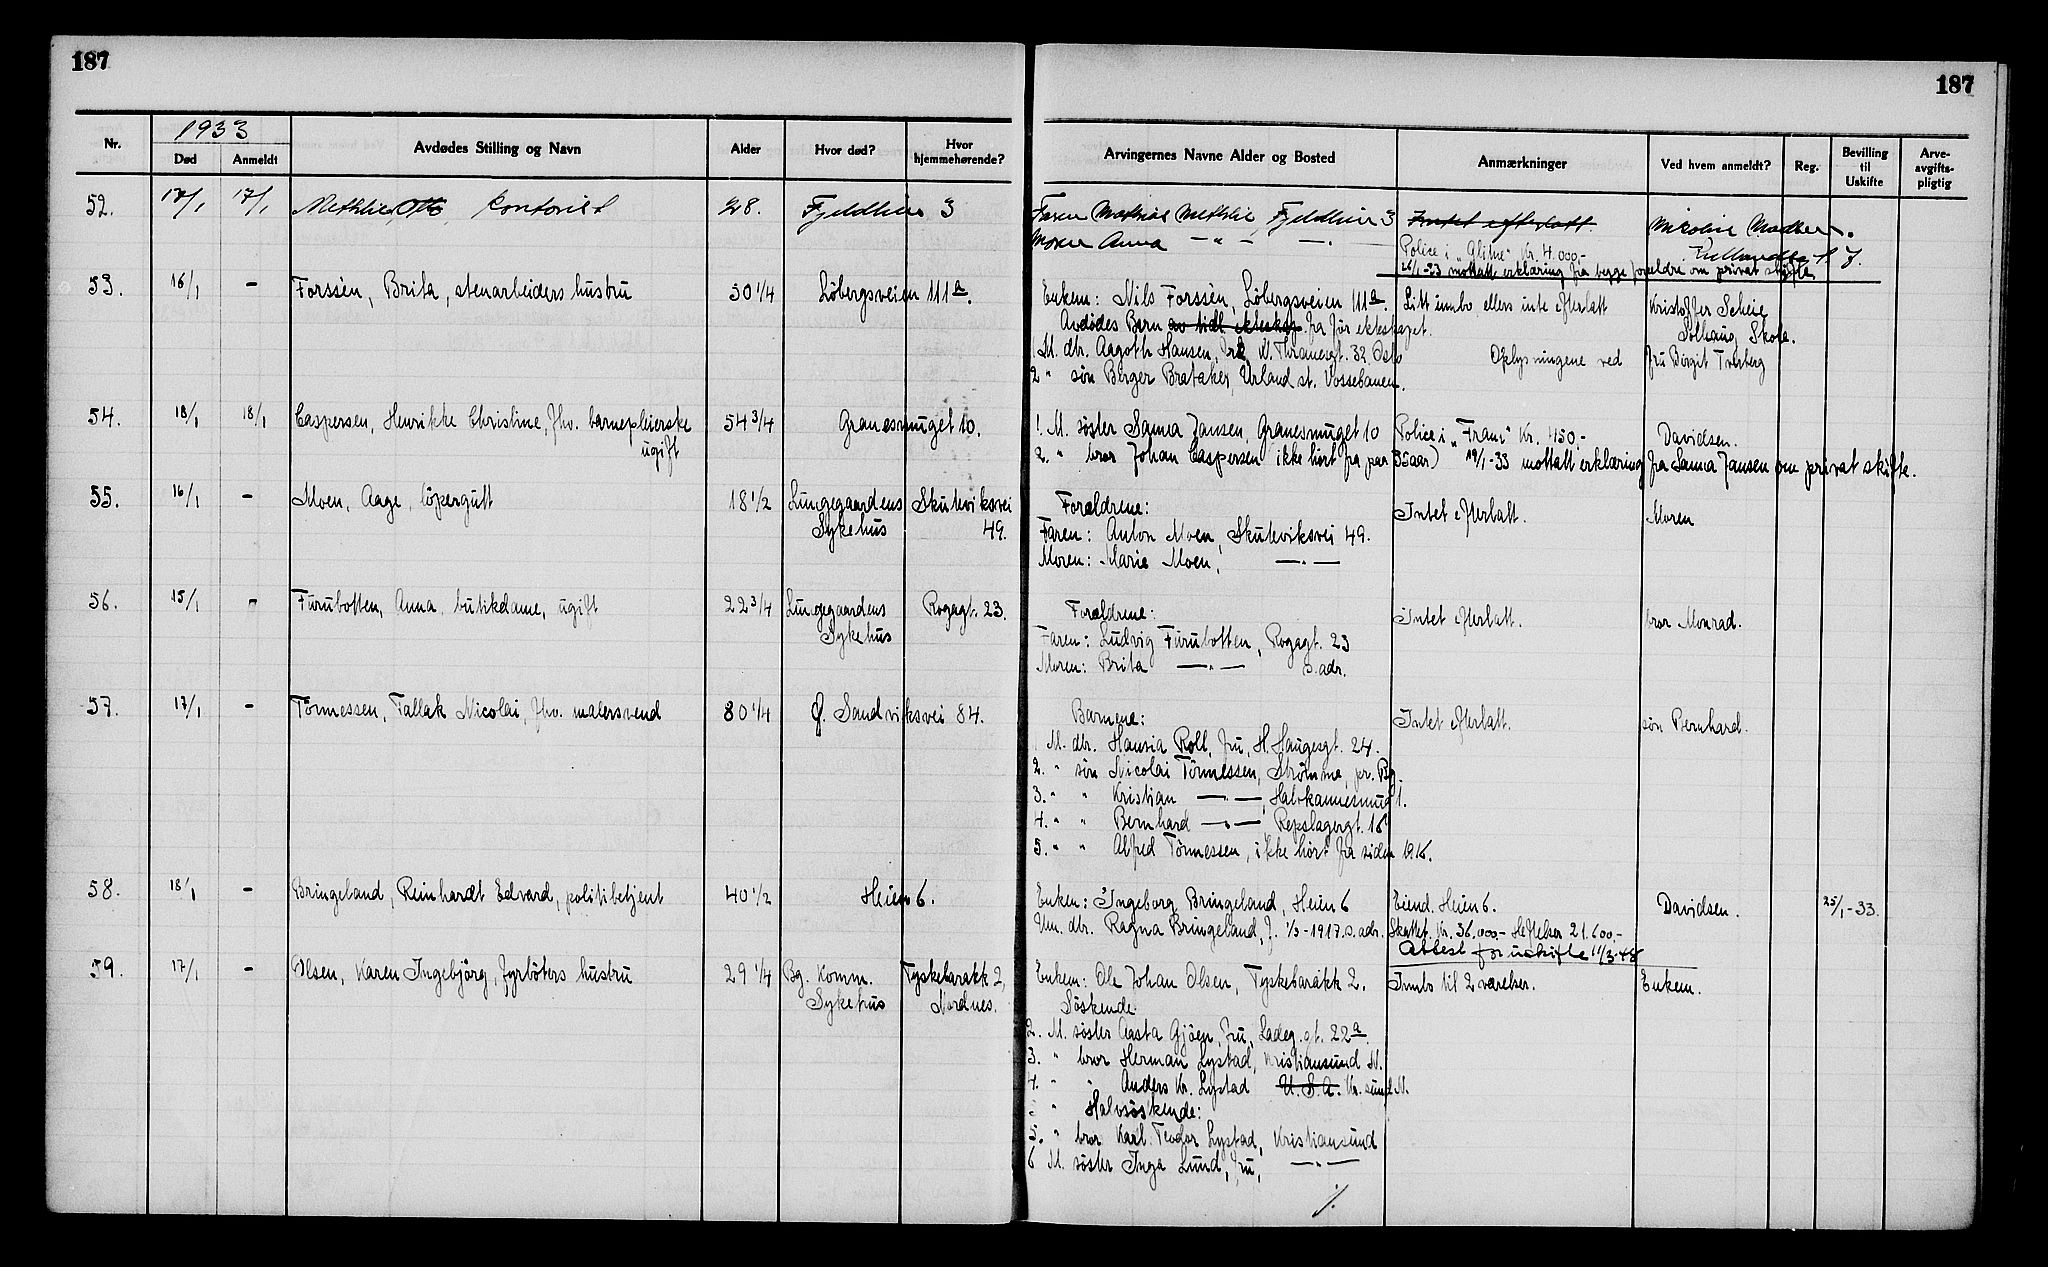 187
187
1933
Nr. Død Anmeldt Avdødes Stilling og Navn Alder Hvor død? Hvor hjemmehørende? Arvingernes Navne Alder og Bosted Anmærkninger Ved hvem anmeldt? Reg. Bevilling til Uskifte Arve-avgifts-pligtig
52. 17/1 17/1 Methlie Otto, kontorist 28. Fjeldlien 3
Faren Mathias Methlie, Fjeldlien 3 Intet efterlatt.
Moren Anna — " — — " —
Police i "Glitne" Kr. 4.000,-
26/1-33 mottatt erklæring fra begge foreldre om privat skifte
53. 16/1 - Forssèn, Brita, stenarbeiders hustru 50 1/4 Løbergsveien 111a.
Enkem: Nils Forssèn, Løbergsveien 111a. Litt innbo ellers inte efterlatt Kristoffer Scheie
Avdødes Børn av tidl. ekteskap fra før ekteskapet. Solhaug Skole.
1 M. dtr. Aagoth Hansen, M. Thranesgt. 32 Oslo Oplysningene ved fru Birgit Tverberg
2 " søn Berger Brataker, Urland st. Vossebanen.
54. 18/1 18/1 Caspersen, Henrikke Christine, fhv. barnepleierske 54 3/4 Granesmuget 10.
ugift
1. M. søster Sanna Jansen, Granesmuget 10 Police i "Fram" Kr. 450,- Davidsen.
2. " bror Johan Caspersen ikke hørt fra paa 35 aar) 19/1-33 mottatt erklæring fra Sanna Jansen om privat skifte.
55. 16/1 - Moen, Aage, løpergutt 18 1/2 Lungegaardens Skuteviksvei
Sykehus 49.
Forældrene: Intet efterlatt. Moren
Faren: Anton Moen, Skuteviksvei 49.
Moren: Marie Moen, — " —
56. 15/1 - Furubotten, Anna, butikdame, ugift 22 3/4 Lungegaardens Rogagt. 23.
Sykehus
Forældrene: Intet efterlatt. bror Monrad.
Faren: Ludvig Furubotten, Rogagt. 23
Moren: Brita — " — s. adr.
57. 17/1 - Tønnessen, Tallak Nicolai, fhv. malersvend 80 1/4 Ø. Sandviksvei 84.
Barnene: Intet efterlatt. søn Bernhard.
1 M. dtr. Hansia Roll, fru, H. Haugesgt. 24.
2. " søn Nicolai Tønnessen, Strømme, pr. Bg.
3. " " Kristian — " —, Halvkannesmug 1.
4. " " Bernhard — " — Repslagergt. 16
5. " " Alfred Tønnessen, ikke hørt fra siden 1916.
58. 18/1 - Bringeland, Reinhardt Edvard, politibetjent 40 1/2 Heien 6.
Enken: Ingeborg Bringeland, Heien 6 Eiend. Heien 6. Davidsen. 25/1-33.
Um. dtr. Ragna Bringeland, f. 1/3-1917. s. adr. Skattet. Kr. 36.000,- Heftelser 21.600,-
Attest for uskifte 11/3-48
59. 17/1 - Olsen, Karen Ingebjørg, fyrbøters hustru 29 1/4 Bg. Komm. Tyskebarakk 2,
Sykehus Nordnes.
Enkem: Ole Johan Olsen, Tyskebarakk 2. Innbo til 2 værelser. Enkem.
Søskende:
2. M. søster Aasta Gjøen, fru, Ladeg. gt. 22a
3. " bror Herman Lystad, Kristiansund N.
4. " " Anders Kr. Lystad U. S. A. Kr. sund N.
" Halvsøskende:
5. " bror Karl Teodor Lystad, Kristiansund
6 M. søster Inga Lund, fru, — " —